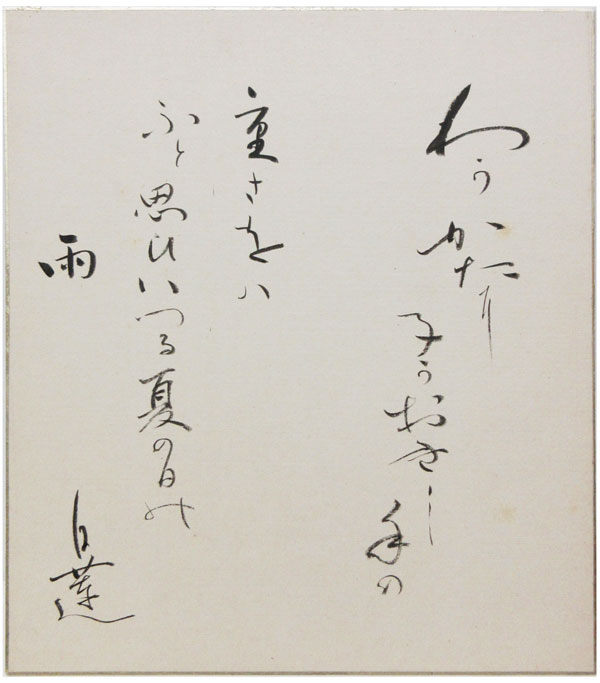 わかかたに
子かおきし手の
重さをハ
ふと思ひいつる夏の日の
雨
白蓮